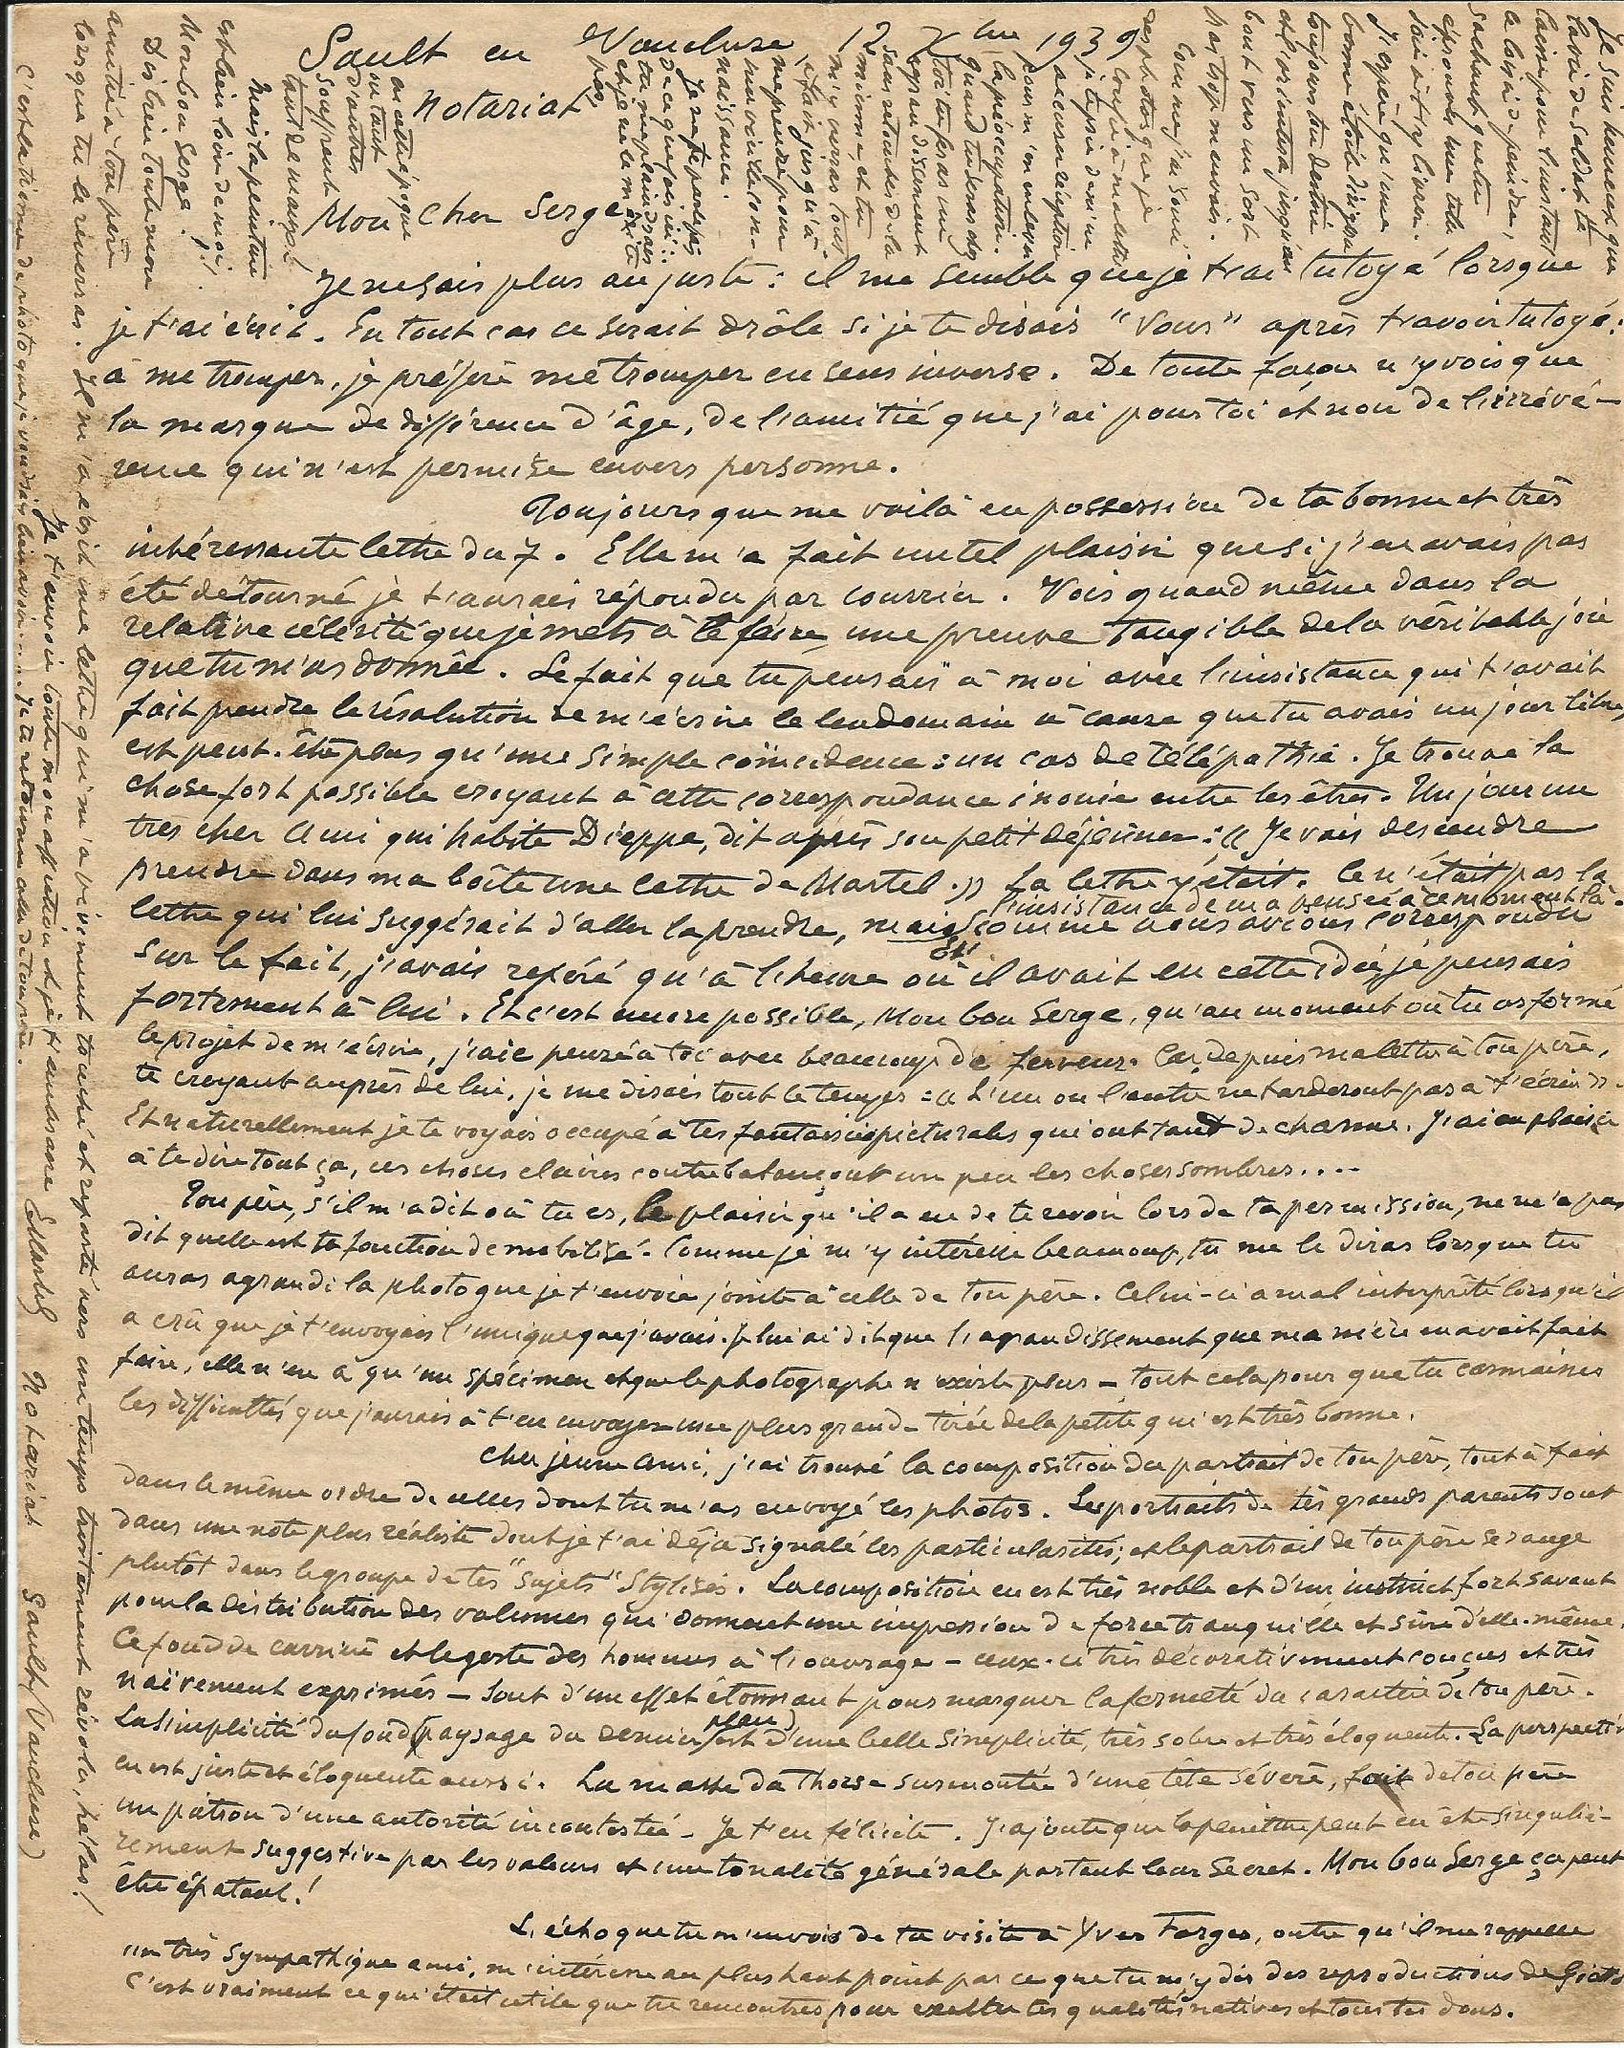 Sault en Vaucluse, 12 Xbre 1939
Notariat
Mon Cher Serge
Je ne sais plus au juste : il me semble que je t'ai tutoyé lorsque
je t'ai écrit. En tout cas ce serait drôle si je te disais "Vous" après t'avoir tutoyé :
à me tromper, je préfère me tromper en sens inverse. De toute façon n'y vois que
la marque de différence d'âge, de l'amitié que j'ai pour toi et non de l'irrévé-
rence qui n'est permise envers personne.
Toujours que me voilà en possession de ta bonne et très
intéressante lettre du 7. Elle m'a fait un tel plaisir que si j'en avais pas
été détourné je t'aurais répondu par courrier. Vois quand même dans la
relative célérité que je mets à le faire, une preuve tangible de la véritable joie
que tu m'as donnée. Le fait que tu pensais à moi avec l'insistance qui t'avait
fait prendre la résolution de m'écrire le lendemain à cause que tu avais un jour libre
est peut-être plus qu'une simple coïncidence : un cas de télépathie. Je trouve la
chose fort possible croyant à cette correspondance inouïe entre les êtres. Un jour un
très cher ami qui habite Dieppe, dit après son petit déjeûner : « Je vais descendre
prendre dans ma boîte une lettre de Martel. » La lettre y était. Ce n'était pas la
lettre qui lui suggérait d'aller la prendre, mais l'insistance de ma pensée à ce moment là.
comme nous avions correspondu
sur le fait, j'avais repéré qu'à l'heure où il avait eu cette idée je pensais
fortement à lui. Et c'est encore possible, Mon bon Serge, qu'au moment où tu as formé
le projet de m'écrire, j'aie pensé à toi avec beaucoup de ferveur. Car depuis ma lettre à ton père,
te croyant auprès de lui, je me disais tout le temps : « L'un ou l'autre ne tarderont pas à t'écrire ».
Et naturellement je te voyais occupé à tes fantaisies picturales qui ont tant de charme. J'ai eu plaisir
à te dire tout ça, ces choses claires contrebalançant un peu les choses sombres....
Ton père, s'il m'a dit où tu es, le plaisir qu'il a eu de te revoir lors de ta permission, ne m'a pas
dit quelle est ta fonction de mobilisé. Comme je m'y intéresse beaucoup, tu me le diras lorsque tu
auras agrandi la photo que je t'envoie jointe à celle de ton père. Celui-ci a mal interprêté lorsqu'il
a crû que je t'envoyais l'unique que j'avais. Je lui ai dit que l'agrandissement que ma mère en avait fait
faire, elle n'en a qu'un spécimen et que le photographe n'existe plus — tout cela pour que tu connaisses
les difficultés que j'aurais à t'en envoyer une plus grande tirée de la petite qui est très bonne.
Cher jeune ami, j'ai trouvé la composition du portrait de ton père, tout à fait
dans le même ordre de celles dont tu m'as envoyé les photos. Les portraits de tes grands parents sont
dans une note plus réaliste dont je t'ai déjà signalé les particularités ; et le portrait de ton père se range
plutôt dans le groupe de tes "sujets" stylisés. La composition en est très noble et d'un instinct fort savant
pour la distribution des volumes qui donnent une impression de force tranquille et sûre d'elle-même.
Ce fond de carrière et le geste des hommes à l'ouvrage — ceux-ci très décorativement conçus et très
naïvement exprimés — sont d'un effet étonnant pour marquer la fermeté du caractère de ton père.
La simplicité du fond (paysage du dernier plan) est d'une belle simplicité, très sobre et très éloquente. La perspective
en est juste et éloquente aussi. La masse du thorse surmontée d'une tête sévère, fait de ton père
un patron d'une autorité incontestée — Je t'en félicite. J'ajoute que la peinture peut en être singuliè-
rement suggestive par les valeurs et une tonalité générale portant leur secret. Mon bon Serge ça peut
être épatant !
L'écho que tu m'envois de ta visite à Yves Farges, outre qu'il me rappelle
un très sympathique ami, m'intéresse au plus haut point par ce que tu m'y dis des reproductions de Giotto
C'est vraiment ce qui était utile que tu rencontres pour exalter tes qualités natives et tous tes dons.
Je suis heureux que
ta vie de soldat te
laisse pour l'instant
le loisir de peindre,
sachant que tu
éprouves une telle
joie à t'y livrer.
J'espère qu'une
bonne étoile dirigera
toujours ta destinée
bout vers un sort
pas trop mauvais.
des photos que je
je te prie de m'en
accuser réception
pour m'enlever
la préoccupation.
quand tu feras des
agrandissements
m'y auras tout
à fait jusqu'à
me prendre pour
ma vieille con-
naissance.
au
pas
à cette époque
où tant
d'autres
souffrent
tant de maux !
Mais la peinture
est bien loin de moi,
Mon bon Serge !
Dis bien toute mon
amitié à ton père
lorsque tu le reverras. Il m'a écrit une lettre qui m'a vivement touché et reporté vers un temps tristement révolu, hélas !
Je t'envoie toute mon affection et je t'embrasse EMartel Notariat Sault (Vaucluse)
C'est la tienne de photo que je voudrais bien avoir..... Je te retourne celle de ton père.